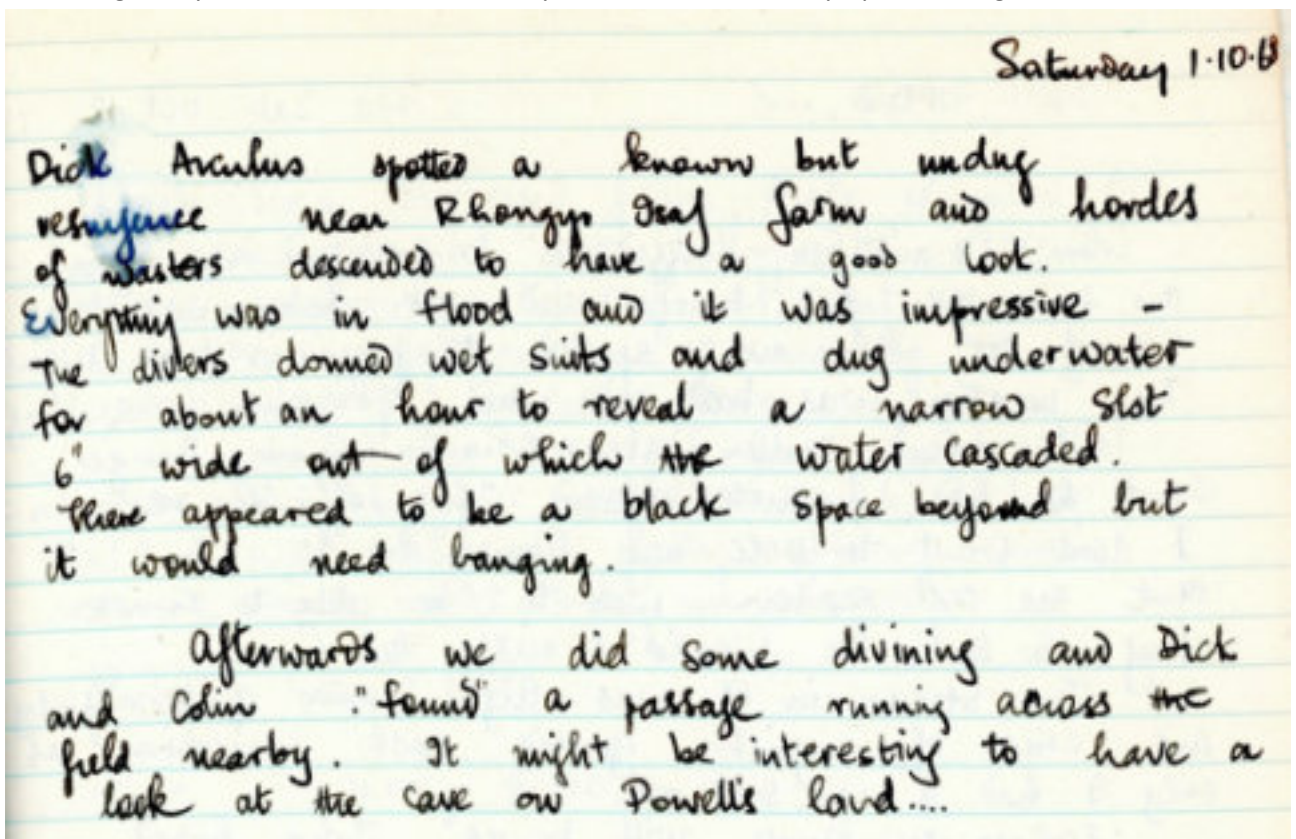 Saturday 1·10·6
Dick Arculus spotted a known but undug
resurgence near Rhongyr Isaf farm and hordes
of wasters descended to have a good look.
Everything was in flood and it was impressive –
The divers donned wet suits and dug underwater
for about an hour to reveal a narrow slot
6" wide out of which the water cascaded.
There appeared to be a black space beyond but
it would need banging.
Afterwards we did some divining and Dick
and Colin "found" a passage running across the
field nearby. It might be interesting to have a
look at the cave on Powell's land....